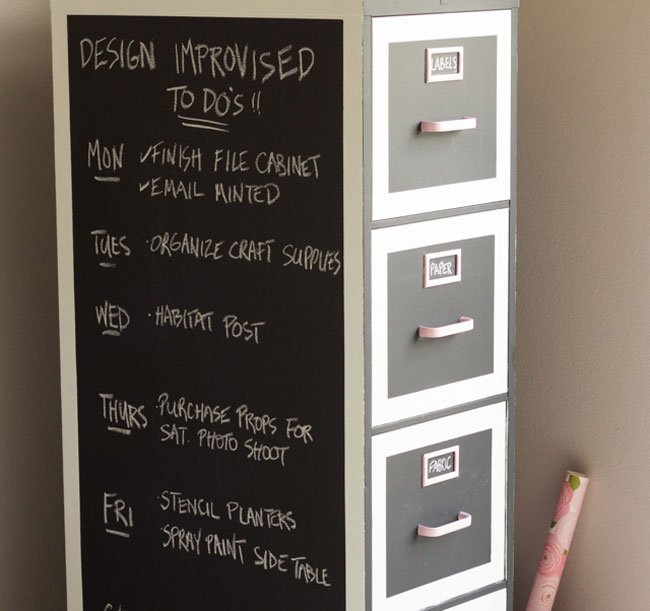 DESIGN IMPROVISED
TO DO'S!!
MON ✓FINISH FILE CABINET
✓EMAIL MINTED
TUES ·ORGANIZE CRAFT SUPPLIES
WED ·HABITAT POST
THURS ·PURCHASE PROPS FOR
SAT. PHOTO SHOOT
FRI ·STENCIL PLANTERS
·SPRAY PAINT SIDE TABLE
LABELS
PAPER
FABRIC